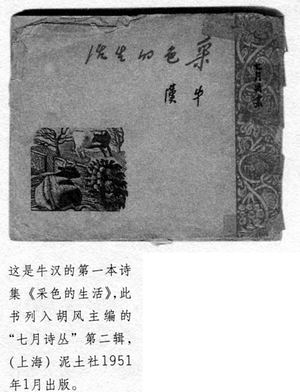 七月詩叢
采色的生活
牛漢
这是牛汉的第一本诗
集《采色的生活》,此
书列入胡风主编的
“七月诗丛”第二辑,
(上海)泥土社1951
年1月出版。